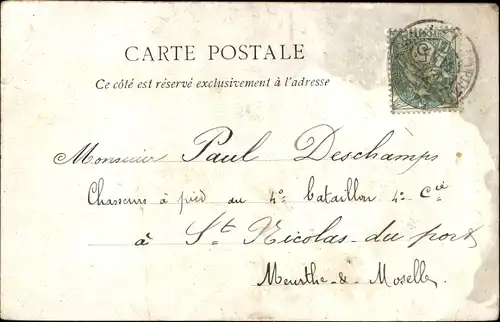 CARTE POSTALE
Ce côté est réservé exclusivement à l'adresse
Monsieur Paul Deschamps
Chasseurs à pied au 4e bataillon 4e Cie
à St Nicolas-du port
Meurthe-&-Moselle